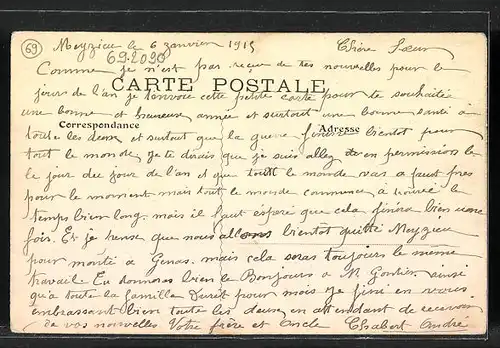 69
Meyzieu le 6 janvier 1915 Chère Sœur
69.2090
Comme je n'est pas reçue de tes nouvelles pour le
CARTE POSTALE
jour de l'an je t'envoie cette petite carte pour te souhaité
une bonne et heureuse année et surtout une bonne santé à
Correspondance Adresse
toute les deux et surtout que la guerre finisse bientot pour
tout le monde. Je te dirais que je suis allez en permission
le jour du jour de l'an et que tout le monde vas a peut pres
pour le moment mais tout le monde commence à trouvé le
temps bien long. mais il faut espéré que cela finira bien une
fois. Et je pense que nous allons bientot quitté Meyzieu
pour monté a Genas. mais cela seras toujours le même
travail. Tu donneras bien le Bonjours a M ainsi
qu'a toute la famille pour mois je fini en vous
embrassant bien toute les deux, en attendant de recevoir
de vos nouvelles Votre frère et oncle Chabert André